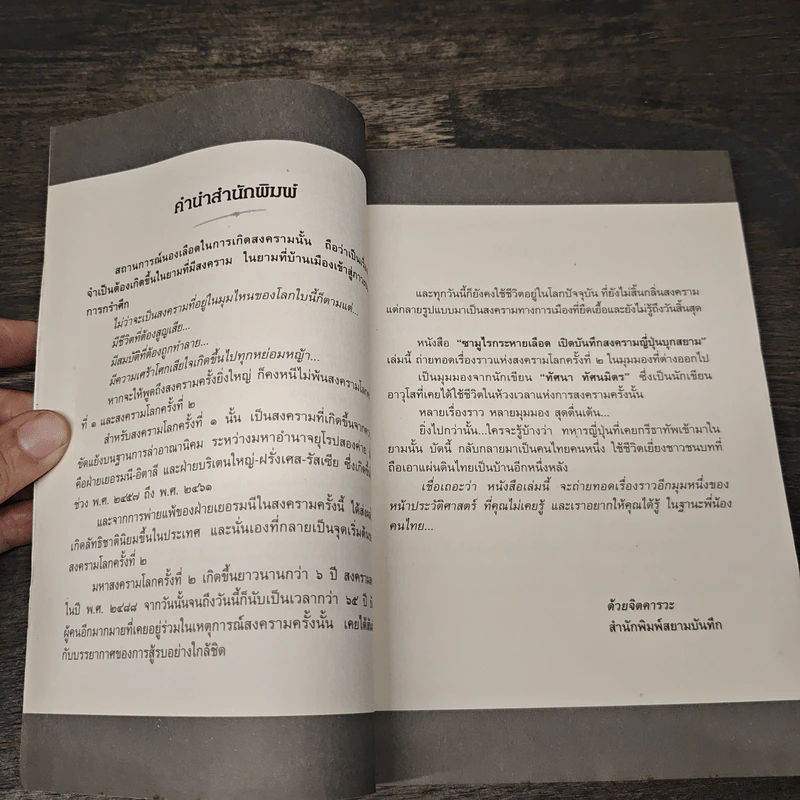 คำนำสำนักพิมพ์
สถานการณ์นองเลือดในการเกิดสงครามนั้น ถือว่าเป็น
จำเป็นต้องเกิดขึ้นในยามที่มีสงคราม ในยามที่บ้านเมืองเข้าสู่
การกรำศึก
ไม่ว่าจะเป็นสงครามที่อยู่ในมุมไหนของโลกใบนี้ก็ตามแต่...
มีชีวิตที่ต้องสูญเสีย...
มีสมบัติที่ต้องถูกทำลาย...
มีความเศร้าโศกเสียใจเกิดขึ้นไปทุกหย่อมหญ้า...
หากจะให้พูดถึงสงครามครั้งยิ่งใหญ่ ก็คงหนีไม่พ้นสงครามโลก
ที่ ๑ และสงครามโลกครั้งที่ ๒
สำหรับสงครามโลกครั้งที่ ๑ นั้น เป็นสงครามที่เกิดขึ้นจาก
ขัดแย้งบนฐานการล่าอาณานิคม ระหว่างมหาอำนาจยุโรปสองค่าย
คือฝ่ายเยอรมนี-อิตาลี และฝ่ายบริเตนใหญ่-ฝรั่งเศส-รัสเซีย ซึ่งเกิด
ช่วง พ.ศ. ๒๔๕๗ ถึง พ.ศ. ๒๔๖๑
และจากการพ่ายแพ้ของฝ่ายเยอรมนีในสงครามครั้งนี้ ได้
เกิดลัทธิชาตินิยมขึ้นในประเทศ และนั่นเองที่กลายเป็นจุดเริ่มต้น
สงครามโลกครั้งที่ ๒
มหาสงครามโลกครั้งที่ ๒ เกิดขึ้นยาวนานกว่า ๖ ปี
ในปี พ.ศ. ๒๔๘๘ จากวันนั้นจนถึงวันนี้ก็นับเป็นเวลากว่า ๖๕ ปี
ผู้คนอีกมากมายที่เคยอยู่ร่วมในเหตุการณ์สงครามครั้งนั้น
กับบรรยากาศของการสู้รบอย่างใกล้ชิด
และทุกวันนี้ก็ยังคงใช้ชีวิตอยู่ในโลกปัจจุบัน ที่ยังไม่สิ้นกลิ่นสงคราม
แต่กลายรูปแบบมาเป็นสงครามทางการเมืองที่ยืดเยื้อและยังไม่รู้ถึงวันสิ้นสุด
หนังสือ "ซามูไรกระหายเลือด เปิดบันทึกสงครามญี่ปุ่นบุกสยาม"
เล่มนี้ ถ่ายทอดเรื่องราวแห่งสงครามโลกครั้งที่ ๒ ในมุมมองที่ต่างออกไป
เป็นมุมมองจากนักเขียน "ทัศนา ทัศนมิตร" ซึ่งเป็นนักเขียน
อาวุโสที่เคยได้ใช้ชีวิตในห้วงเวลาแห่งการสงครามครั้งนั้น
หลายเรื่องราว หลายมุมมอง สุดตื่นเต้น...
ยิ่งไปกว่านั้น...ใครจะรู้บ้างว่า ทหารญี่ปุ่นที่เคยกรีธาทัพเข้ามาใน
ยามนั้น บัดนี้ กลับกลายมาเป็นคนไทยคนหนึ่ง ใช้ชีวิตเยี่ยงชาวชนบทที่
ถือเอาแผ่นดินไทยเป็นบ้านอีกหนึ่งหลัง
เชื่อเถอะว่า หนังสือเล่มนี้ จะถ่ายทอดเรื่องราวอีกมุมหนึ่งของ
หน้าประวัติศาสตร์ ที่คุณไม่เคยรู้ และเราอยากให้คุณได้รู้ ในฐานะพี่น้อง
คนไทย...
ด้วยจิตคารวะ
สำนักพิมพ์สยามบันทึก